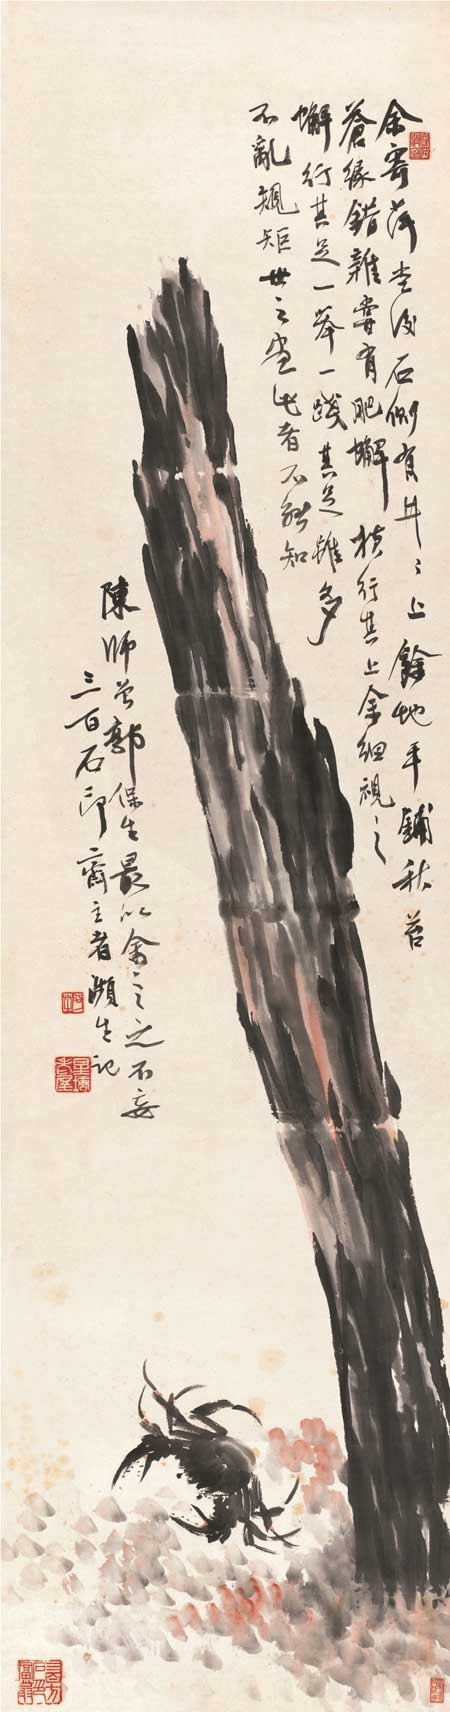 余寄萍堂後石側有井〻上餘地平鋪秋苔
蒼緑錯雜嘗有肥蠏橫行其上余細視之
蠏行其足一舉一踐其足雖多
不亂規矩世之畫此者不能知
陳師曾郭保生最以余言之不妄
三百石印齋主者瀕生記
三百石印富翁